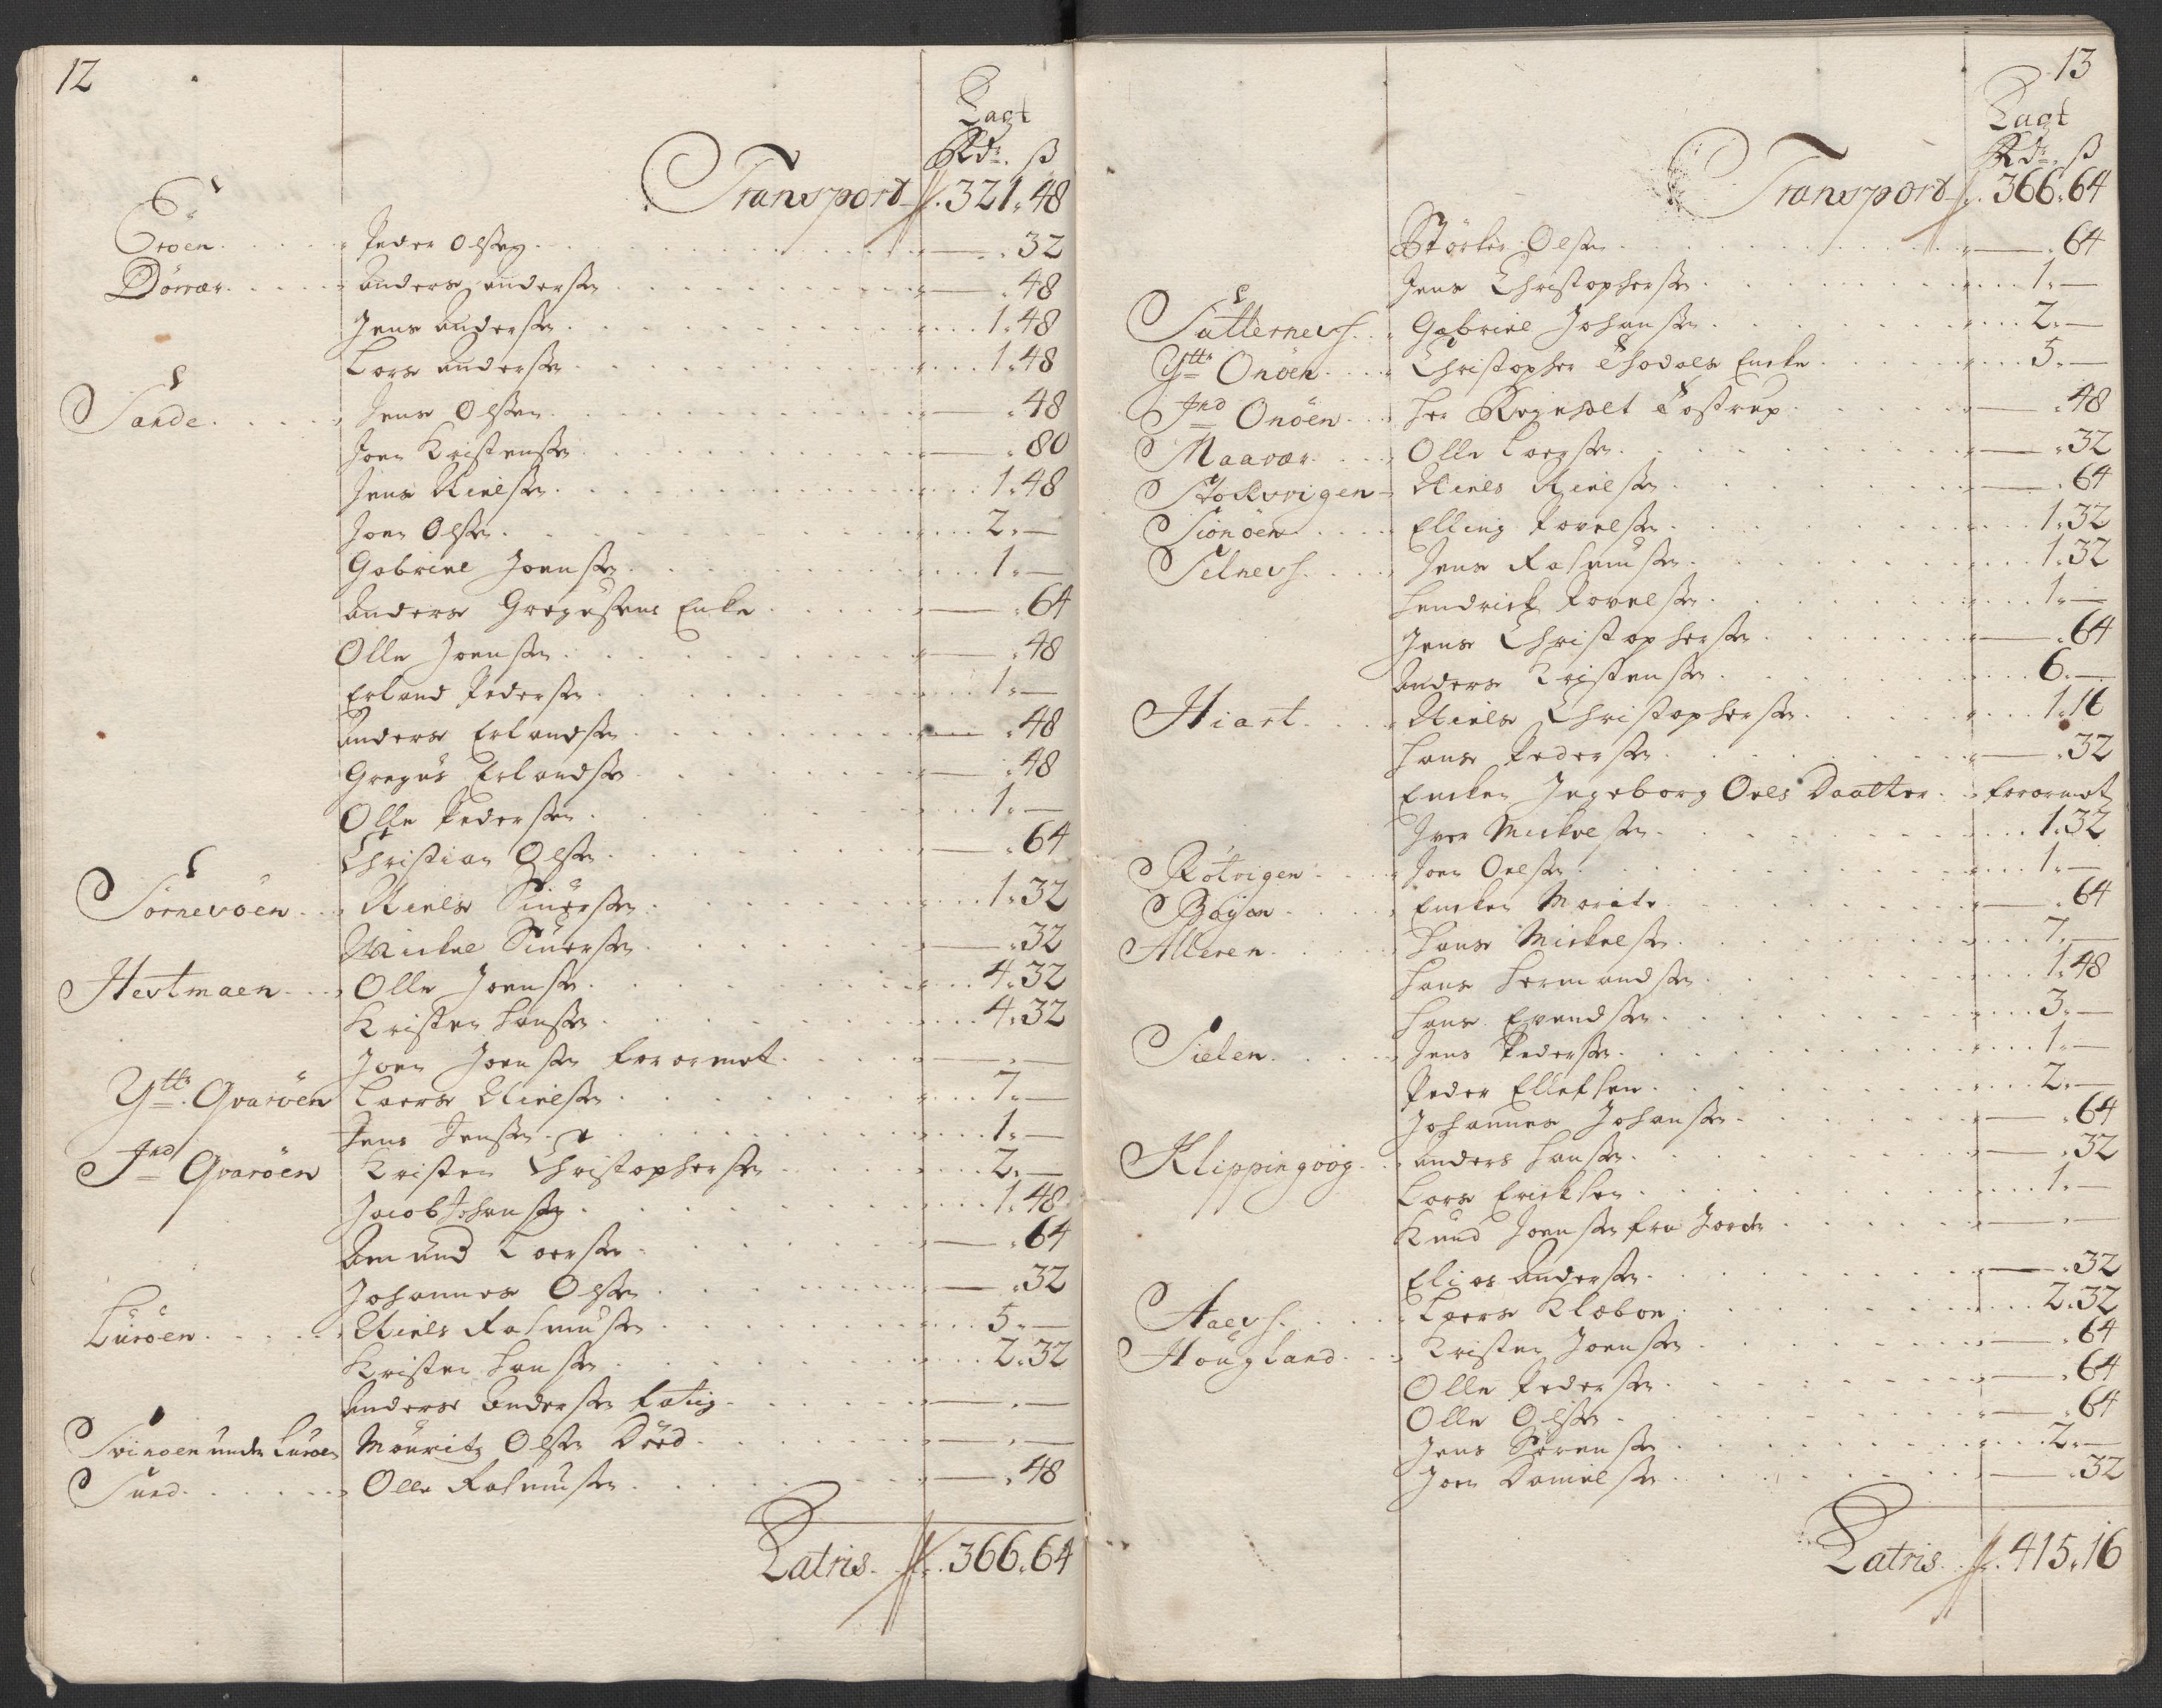 12
Lagt
Rdr. ß
Transport 321.48
Eröen Peder Olsen 32
Dörvær Anders Andersen 48
Jens Andersen 1.48
Lars Andersen 1.48
Sande Jens Olsen 48
Joen Kristensen 80
Jens Nielsen 1.48
Joen Olsen 2.—
Gabriel Joensen 1.—
Anders Gregusens Enke 64
Olle Joensen 48
Erland Pedersen 1.—
Anders Erlandsen 48
Gregus Erlandsen 48
Olle Pedersen 1.—
Christian Olsen 64
Sörnesöen Niels Siuersen 1.32
Mickel Siuersen 32
Hestmaen Olle Joensen 4.32
Kristen Hansen 4.32
Joen Joensen forarmet —.—
Ytt. Qvaröen Laers Nielsen 7.—
Jens Jensen 1.—
Ind Qvaröen Kristen Christophersen 2.—
Jacob Johansen 1.48
Amund Laersen 64
Johannes Olsen 32
Luröen Niels Rasmusen 5.—
Kristen Hansen 2.32
Anders Andersen fatig —.—
Svinöen under Luröen Mouritz Olsen Dööd —.—
Sund Olle Rasmusen 48
Latris 366.64
13
Lagt
Rdr. ß
Transport 366.64
Störker Olsen 64
Jens Christophersen 1.—
Sütternes Gabriel Johansen 2.—
Ytt. Onöen Christopher Thodals Encke 5.—
Ind Onöen Her Reginholt Tostrup 48
Maavær Olle Laersen 32
Stockvigen Niels Nielsen 64
Sionöen Elling Povelsen 1.32
Selnes Jens Rasmusen 1.32
Hendrick Povelsen 1.—
Jens Christophersen 64
Anders Kristensen 6.—
Hiart Niels Christophersen 1.16
Hans Pedersen 32
Encken Ingeborg Oels Daatter forarmet
Iver Mickelsen 1.32
Rötvigen Joen Oelsen 1.—
Bøyen Encken Marite 64
Alleren Hans Mickelsen 7.—
Hans Hermandsen 1.48
Hans Evendsen 3.—
Sielen Jens Pedersen 1.—
Peder Ellefsen 2.—
Johannes Johansen 64
Klippingvog Anders Hansen 32
Lars Ericksen 1.—
Knud Joensen fra Jorden —.—
Elias Andersen 32
Aaes Laers Klæboe 2.32
Hougland Kristen Joensen 64
Olle Pedersen 64
Olle Olsen 64
Jens Sörensen 2.—
Joen Danielsen 32
Latris 415.16